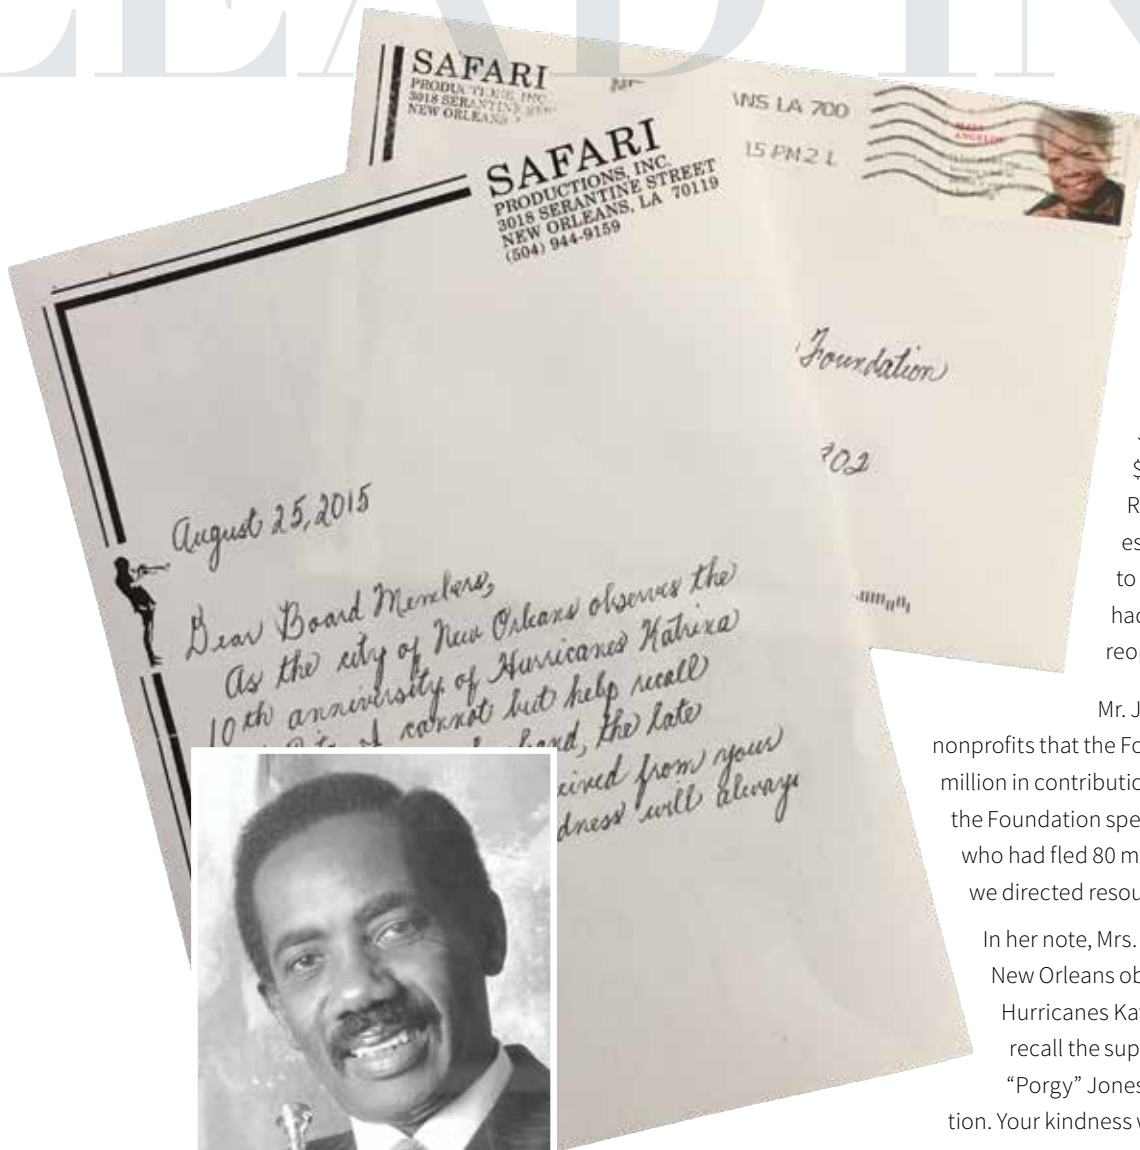 LEAD IN
SAFARI
PRODUCTIONS, INC.
3018 SERANTINE
NEW ORLEANS
NS LA 700
15 PM 2 L
MAYA
ANGELOU
SAFARI
PRODUCTIONS, INC.
3018 SERANTINE STREET
NEW ORLEANS, LA 70119
(504) 944-9159
Foundation
302
August 25, 2015
Dear Board Members,
As the city of New Orleans observes the
10th anniversity of Hurricanes Katrina
I cannot but help recall
the late
eived from your
dness will always
$
R
es
to
had
reop
Mr. J
nonprofits that the Fo
million in contributio
the Foundation spe
who had fled 80 m
we directed resou
In her note, Mrs.
New Orleans ob
Hurricanes Kat
recall the sup
“Porgy” Jones
tion. Your kindness w